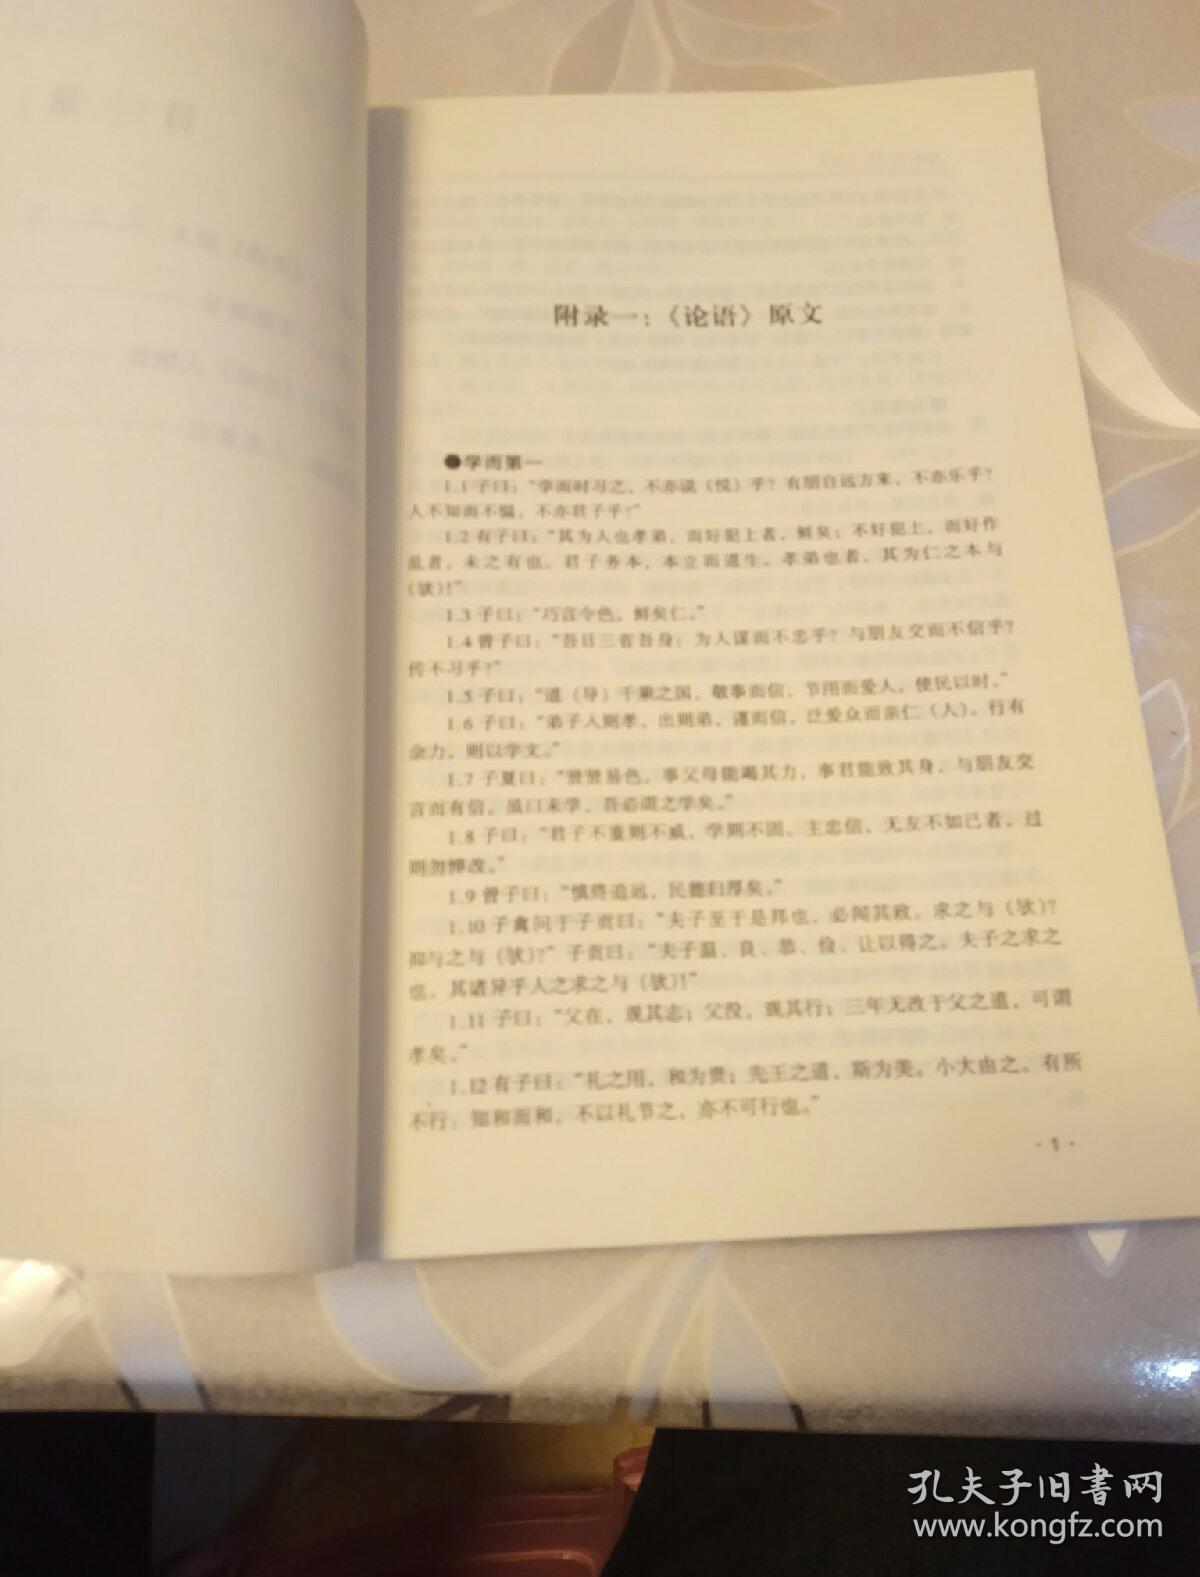 附录一：《论语》原文
●学而第一
1.1 子曰：“学而时习之，不亦说（悦）乎？有朋自远方来，不亦乐乎？
人不知而不愠，不亦君子乎？”
1.2 有子曰：“其为人也孝弟，而好犯上者，鲜矣；不好犯上，而好作
乱者，未之有也。君子务本，本立而道生。孝弟也者，其为仁之本与
（欤）！”
1.3 子曰：“巧言令色，鲜矣仁。”
1.4 曾子曰：“吾日三省吾身：为人谋而不忠乎？与朋友交而不信乎？
传不习乎？”
1.5 子曰：“道（导）千乘之国，敬事而信，节用而爱人，使民以时。”
1.6 子曰：“弟子入则孝，出则弟，谨而信，泛爱众而亲仁（人）。行有
余力，则以学文。”
1.7 子夏曰：“贤贤易色，事父母能竭其力，事君能致其身，与朋友交
言而有信，虽曰未学，吾必谓之学矣。”
1.8 子曰：“君子不重则不威，学则不固。主忠信，无友不如己者，过
则勿惮改。”
1.9 曾子曰：“慎终追远，民德归厚矣。”
1.10 子禽问于子贡曰：“夫子至于是邦也，必闻其政，求之与（欤）？
抑与之与（欤）？”子贡曰：“夫子温、良、恭、俭、让以得之。夫子之求之
也，其诸异乎人之求之与（欤）！”
1.11 子曰：“父在，观其志；父没，观其行；三年无改于父之道，可谓
孝矣。”
1.12 有子曰：“礼之用，和为贵；先王之道，斯为美。小大由之。有所
不行：知和而和，不以礼节之，亦不可行也。”
·1·
孔夫子旧书网
www.kongfz.com